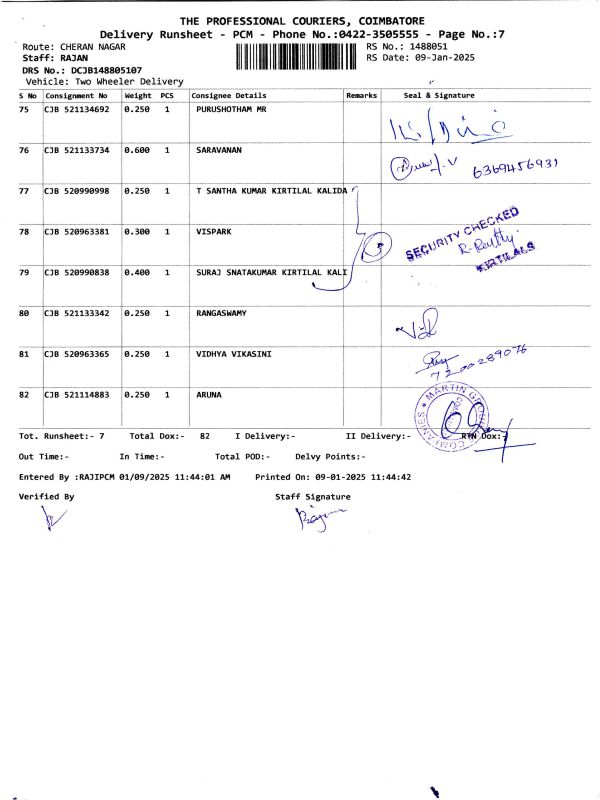 THE PROFESSIONAL COURIERS, COIMBATORE
Delivery Runsheet - PCM - Phone No.:0422-3505555 - Page No.:7
Route: CHERAN NAGAR RS No.: 1488051
Staff: RAJAN RS Date: 09-Jan-2025
DRS No.: DCJB148805107
Vehicle: Two Wheeler Delivery
S No Consignment No Weight PCS Consignee Details Remarks Seal & Signature
75 CJB 521134692 0.250 1 PURUSHOTHAM MR
76 CJB 521133734 0.600 1 SARAVANAN 6369456931
77 CJB 520990998 0.250 1 T SANTHA KUMAR KIRTILAL KALIDA
78 CJB 520963381 0.300 1 VISPARK SECURITY CHECKED
79 CJB 520990838 0.400 1 SURAJ SNATAKUMAR KIRTILAL KALI KIRTILALS
80 CJB 521133342 0.250 1 RANGASWAMY
81 CJB 520963365 0.250 1 VIDHYA VIKASINI 7200289076
82 CJB 521114883 0.250 1 ARUNA MARTIN GROUP COMPANIES
Tot. Runsheet:- 7 Total Dox:- 82 I Delivery:- II Delivery:- RTN Dox:-
Out Time:- In Time:- Total POD:- Delvy Points:-
Entered By :RAJIPCM 01/09/2025 11:44:01 AM Printed On: 09-01-2025 11:44:42
Verified By Staff Signature
Rajan